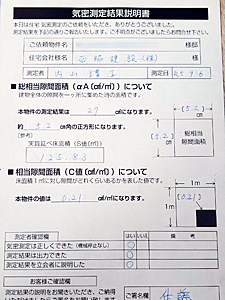 気密測定結果説明書
本日は住宅 気密測定のご依頼をいただき、ありがとうございました。
測定結果を下記の通りご報告いたします。ご不明な点がございましたらお問合せ下さい。
ご依頼物件名 様邸
住宅会社様名 建設(様)
測定者 測定日 25.9.6
■総相当隙間面積(αA(c㎡))について
建物全体の隙間を一ヶ所に集めた時の面積です。
本物件の測定結果は 27 c㎡になります。
約 5.2 cm角の正方形になります。
(参考)
実質延べ床面積(S(㎡))
125.83
[5.2] cm
[5.2] cm
総相当
隙間面積
■相当隙間面積(C値(c㎡/㎡))について
床面積1㎡に対し隙間がどれくらいあるかを表した値です。
本物件の値は 0.21 c㎡/㎡になります。
1m
1m
0.21
測定者確認欄 はい いいえ 備考
気密測定は正しくできた(機械停止なし) ○
測定結果は出力できた ○
測定結果を立会者に説明した ○
お客様ご確認欄
測定結果の説明をお聞きいただき、ご納得
ご署名欄 佐藤